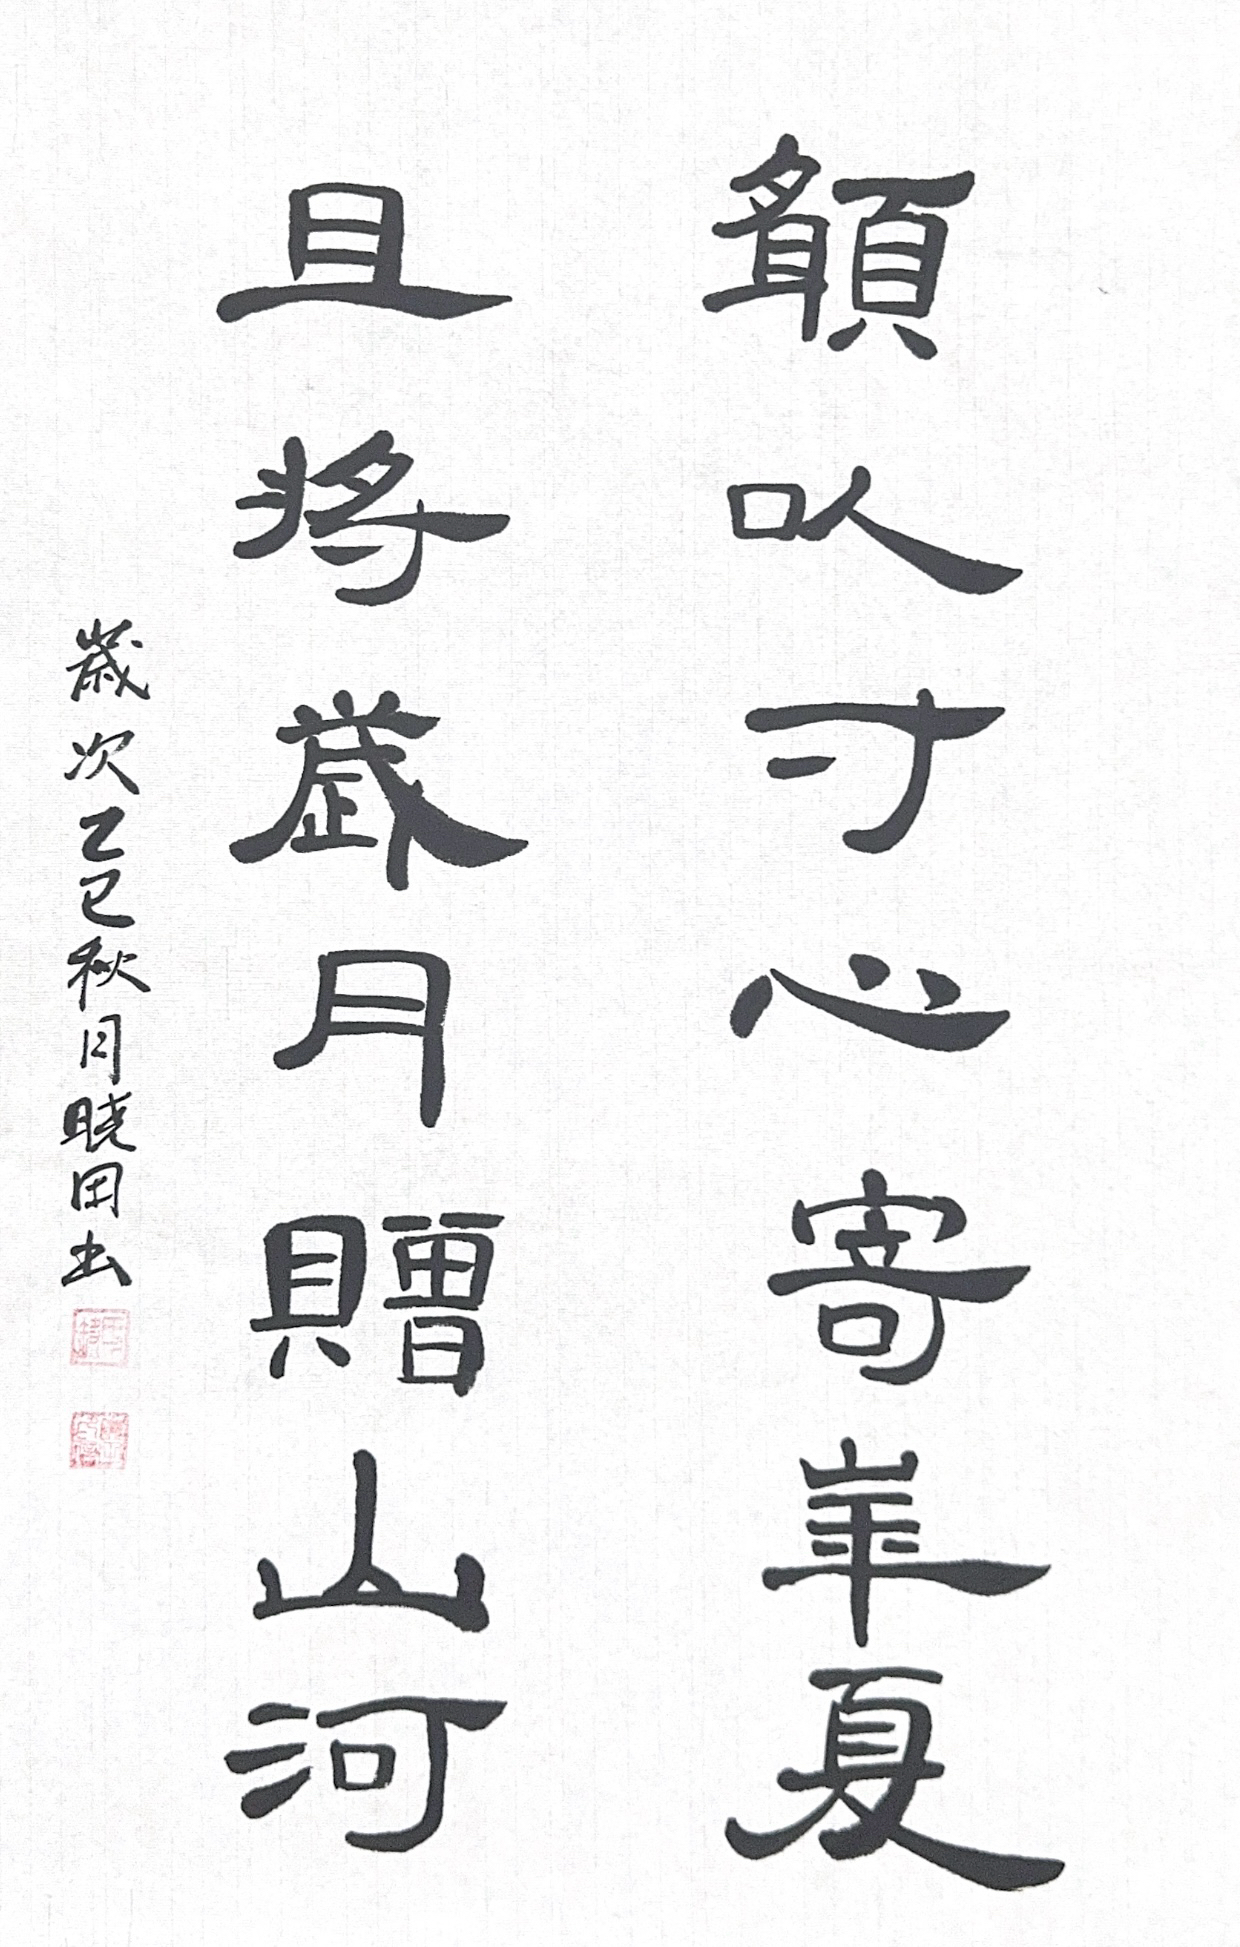 願以寸心寄華夏
且將歲月贈山河
歲次乙巳秋月曉田书